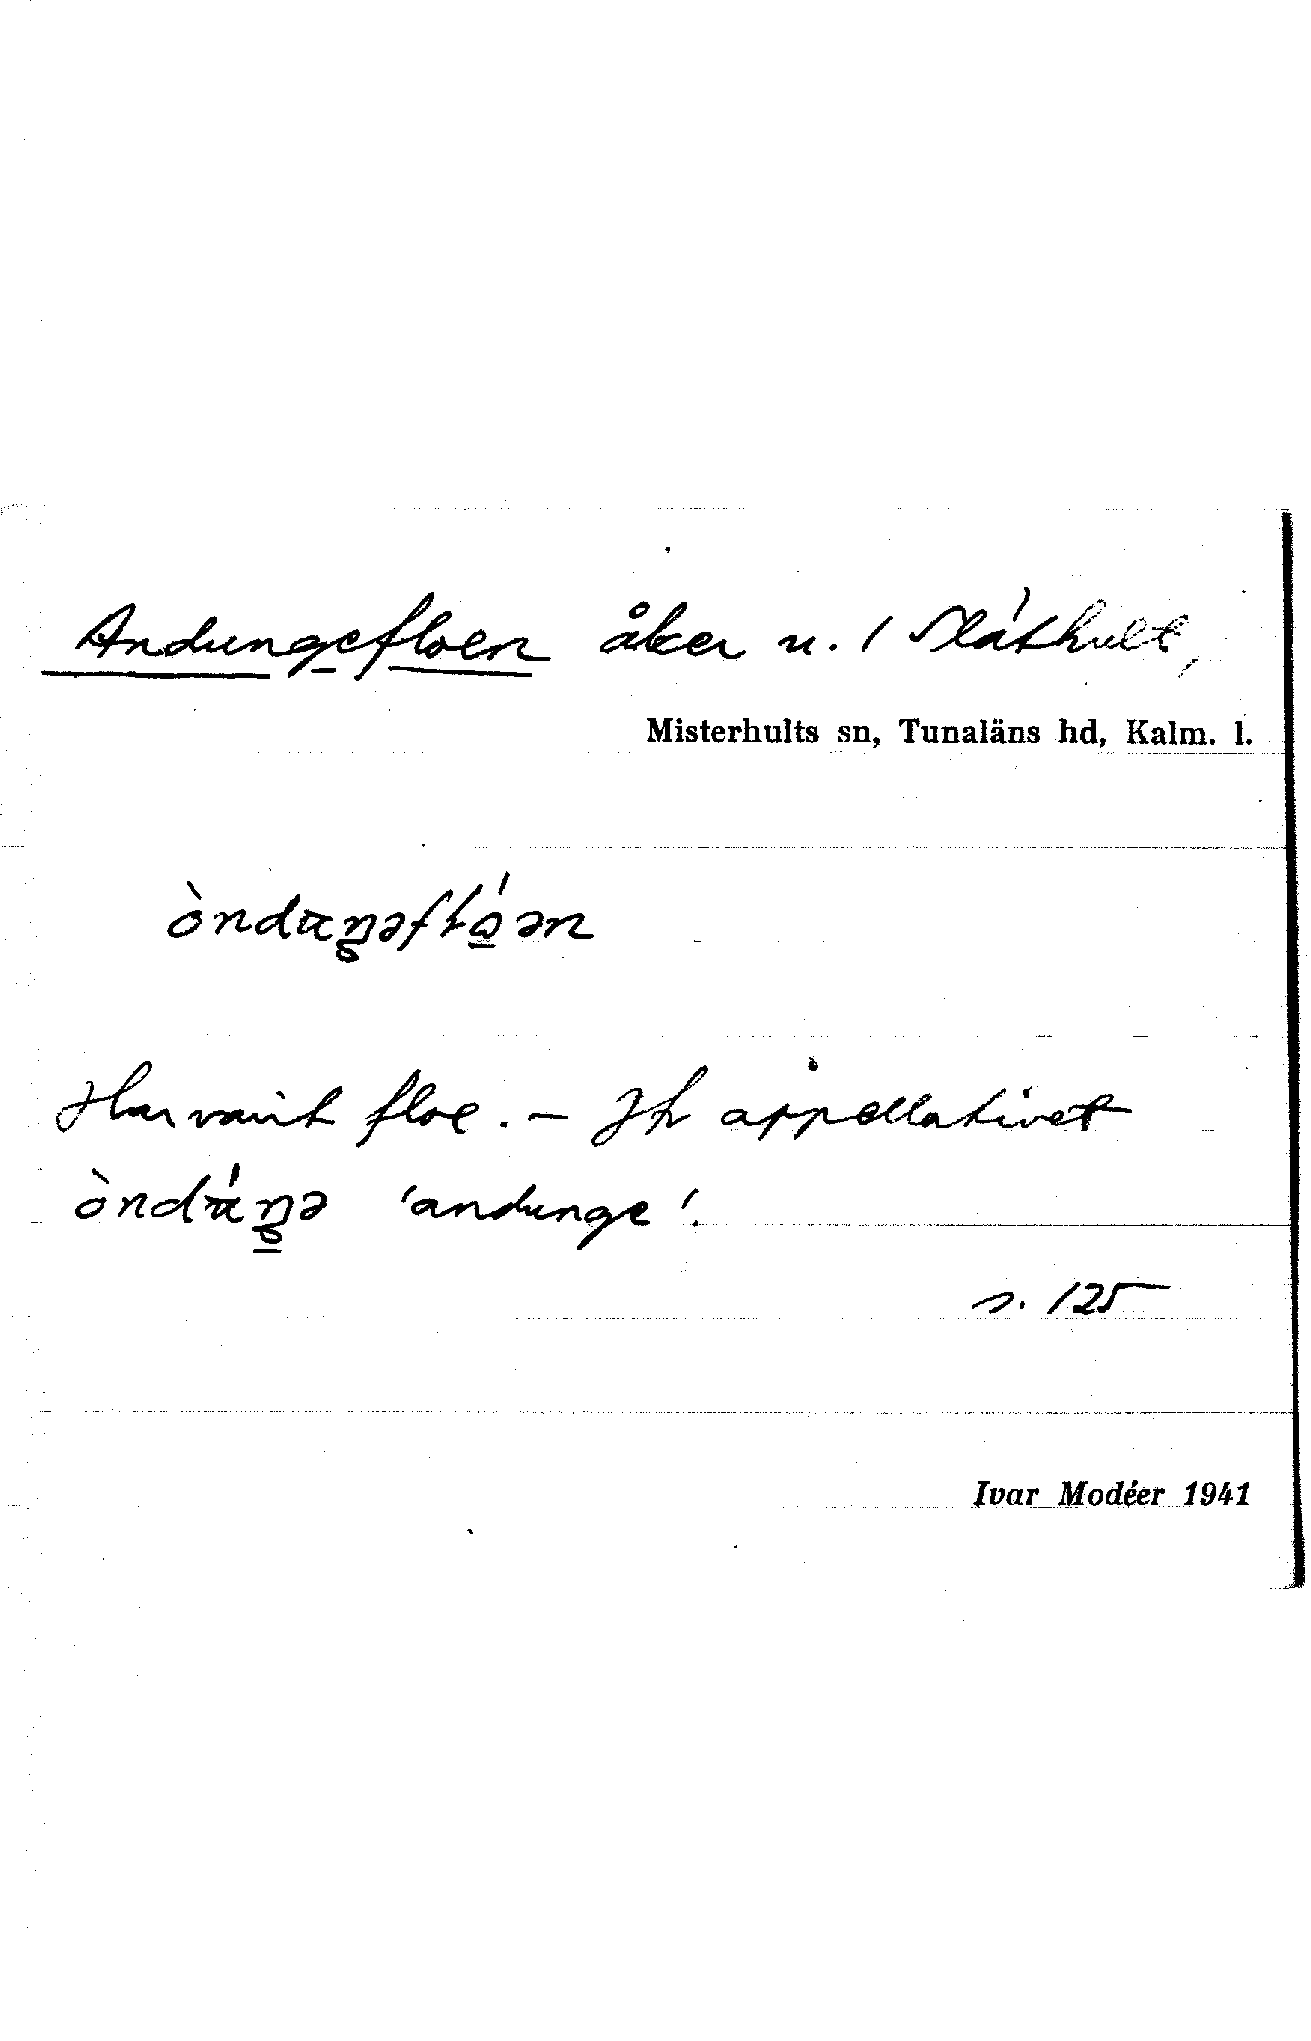 Andungefloen åker u. / Slåthult,
Misterhults sn, Tunaläns hd, Kalm. l.
òndɑŋəfɫó̱ən
Har varit floe. – Jfr appellativet
òndɑ́ŋə 'andunge'.
s. 125
Ivar Modéer 1941